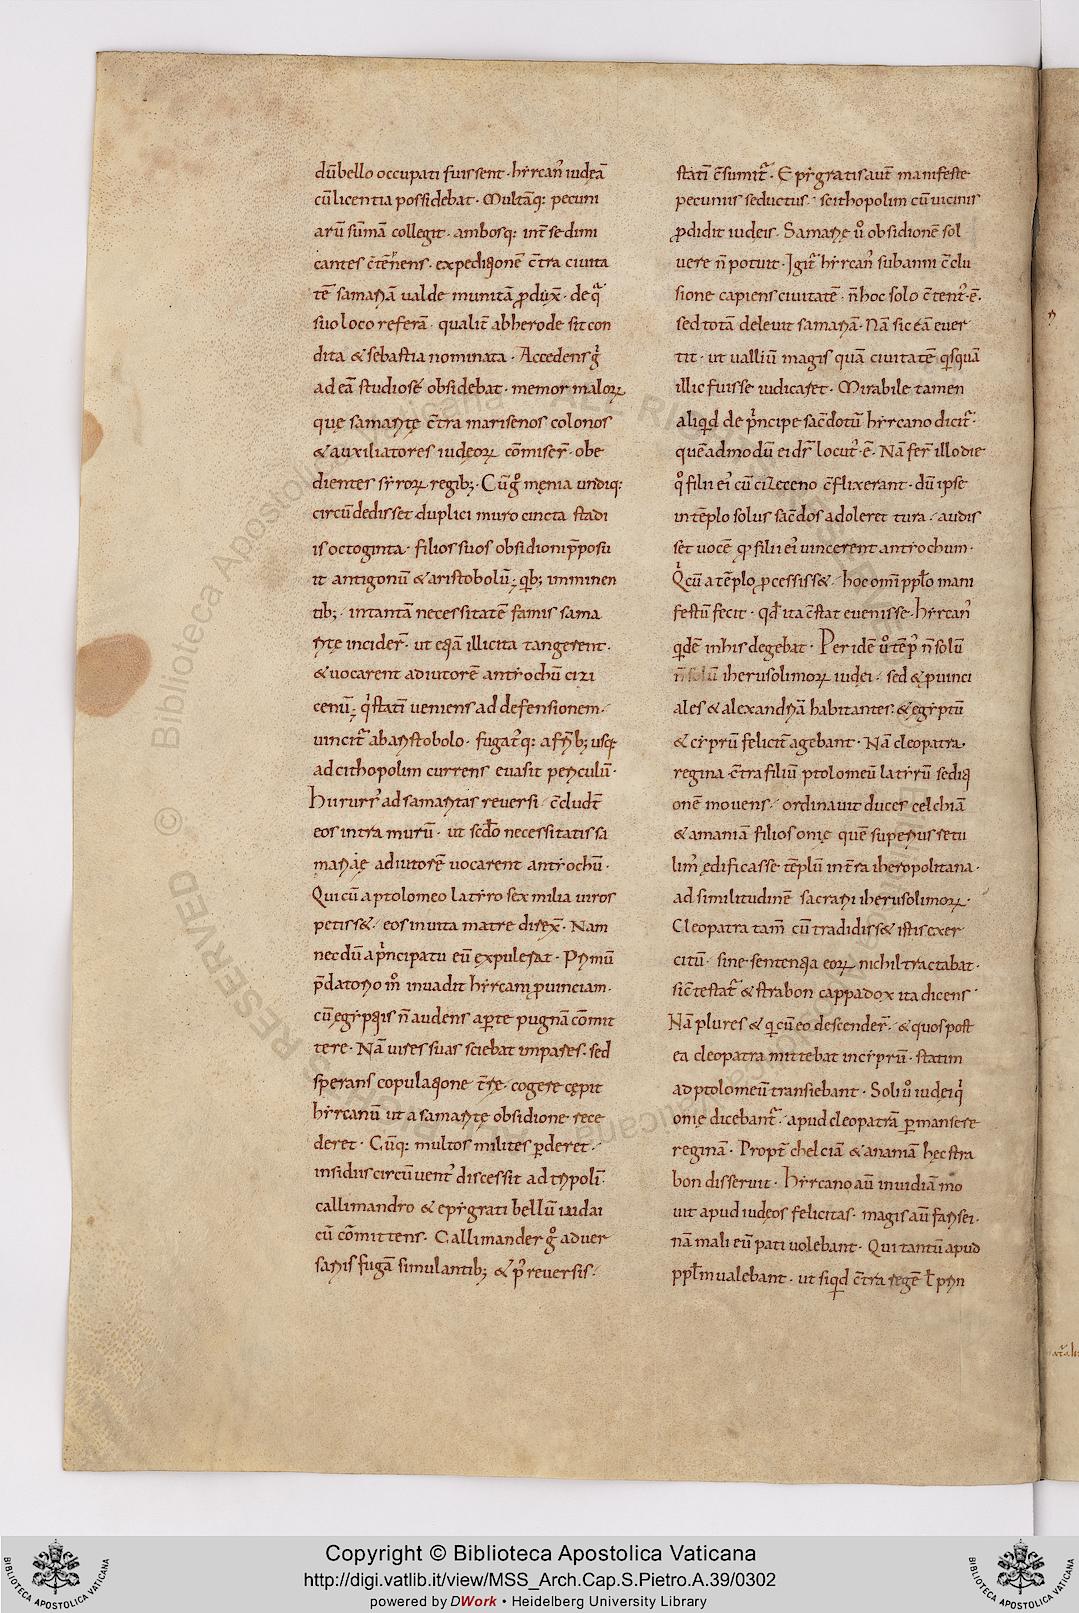 dū bello occupati fuissent · hẏrcan᷒ iudeā
cū licentia possidebat · Multāq: pecuni
arū sūmā collegit · ambosq: int̄ se dimi
cantes c̄tēnens · expeditionē c̄tra ciuita
tē samariā ualde munitā ꝓdux̄ · de q̄
suo loco referā · qualit̄ ab herode sit con
dita & sebastia nominata · Accedens g̊
ad eā studiose obsidebat · memor maloꝝ
que samarite c̄tra marisenos colonos
& auxiliatores iudęoꝝ cōmiser̄ · obe
dientes sẏroꝝ regib; · Cū g̊ męnia undiq:
circūdedisset duplici muro cincta stadi
is octoginta · filios suos obsidioni p̄posu
it antigonū & aristobolū · qb; imminen
tib; · in tantā necessitatē famis sama
rite incider̄ · ut etiā illicita tangerent ·
& uocarent adiutorē antiochū cizi
cenū · q̇ statī ueniens ad defensionem ·
uincit᷒ ab aristobolo · fugat᷒q: a fr̄ib; usq:
ad cithopolim currens euasit periculū ·
Hi rurs᷒ ad samaritas reuersi · c̄cludt̄
eos intra murū · ut scd̄o necessitatis sa
marię adiutorē uocarent antiochū ·
Qui cū a ptolomeo latẏro sex milia uiros
petiss& · eos inuita matre direx̄ · Nam
necdū a ṗncipatu eū expulerat · Primū
p̄datorio m̊ inuadit hẏrcani ꝓuinciam ·
cū egẏptiis n̄ audens aꝑte pugnā cōmit
tere · Nā uires suas sciebat impares · sed
sperans copulatione t̄re · cogere cępit
hẏrcanū ut a samarite obsidione rece
deret · Cūq: multos milites ꝑderet ·
insidiis circūuent᷒ discessit ad tripolī ·
callimandro & epẏgrati bellū iudai
cū cōmittens · Callimander g̊ aduer
sariis fugā simulantib; & p᷒ reuersis ·
statī c̄sumit᷒ · Epẏgratis aut̄ manifeste
pecuniis seductus · scithopolim cū uicinis
ꝓdidit iudeis · Samarię ů obsidionē sol
uere n̄ potuit · Igit᷒ hẏrcan᷒ sub anni c̄clu
sione capiens ciuitatē · n̄ hoc solo c̄tent᷒ · ē ·
sed totā deleuit samariā · Nā sic eā euer
tit · ut ualliū magis quā ciuitatē qisquā
illic fuisse iudicaret · Mirabile tamen
aliqid de ṗncipe sac̄dotū hẏrcano dicit᷒ ·
quēadmodū ei dr̄ locut᷒ · ē · Nā fer̄ illo die
q̊ filii ei᷒ cū cizeceno c̄flixerant · dū ipse
in tēplo solus sac̄dos adoleret tura · audis
set uocē qꝫ filii ei᷒ uincerent antiochum ·
Q̇ cū a tēplo ꝓcessiss& · hoc omni ppl̄o mani
festū fecit · qd̄ ita c̄stat euenisse · hẏrcan᷒
qidē in his degebat · Per idē ů tēp᷒ n̄ solū
n̄ solū iherusolimoꝝ iudei · sed & ꝓuinci
ales & alexandriā habitantes · & egẏptū
& cẏprū felicit̄ agebant · Nā cleopatra
regina · c̄tra filiū ptolomeū latẏrū sediti
onē mouens · ordinauit duces celchiā
& amaniā filios onię quē superius retu
lim᷒ ędificasse tēplū int̄ra iheropolitana ·
ad similitudinē sacrarii iherusolimoꝝ ·
Cleopatra tam̄ cū tradidiss& istis exer
citū · sine sententia eoꝝ nichil tractabat ·
sic̄ testat᷒ & strabon cappadox ita dicens ·
Nā plures & qi cū eo descender̄ · & quos post
ea cleopatra mittebat in cẏprū · statim
ad ptolomeū transiebant · Soli ů iudei q̇
onię dicebant᷒ · apud cleopatrā ꝑmansere
reginā · Propt̄ chelciā & ananiā hęc stra
bon disseruit · Hẏrcano aū inuidiā mo
uit apud iudęos felicitas · magis aū farisei ·
nā mali eū pati uolebant · Qui tantū apud
ppl̄m ualebant · ut siqid c̄tra regē ł prin
Copyright © Biblioteca Apostolica Vaticana
http://digi.vatlib.it/view/MSS_Arch.Cap.S.Pietro.A.39/0302
powered by DWork • Heidelberg University Library